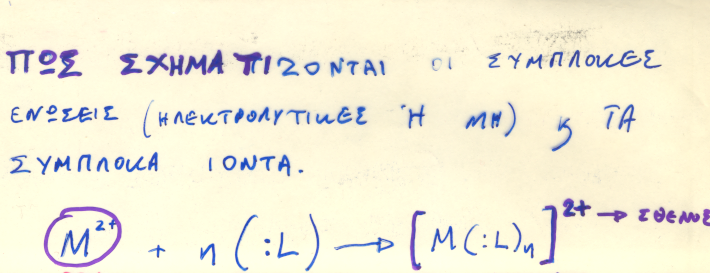 ΠΩΣ ΣΧΗΜΑΤΙΖΟΝΤΑΙ ΟΙ ΣΥΜΠΛΟΚΕΣ
ΕΝΩΣΕΙΣ (ΗΛΕΚΤΡΟΛΥΤΙΚΕΣ Ή ΜΗ) ϗ ΤΑ
ΣΥΜΠΛΟΚΑ ΙΟΝΤΑ.
M²⁺ + n (:L) → [M(:L)n]²⁺ → ΣΘΕΝΟΣ